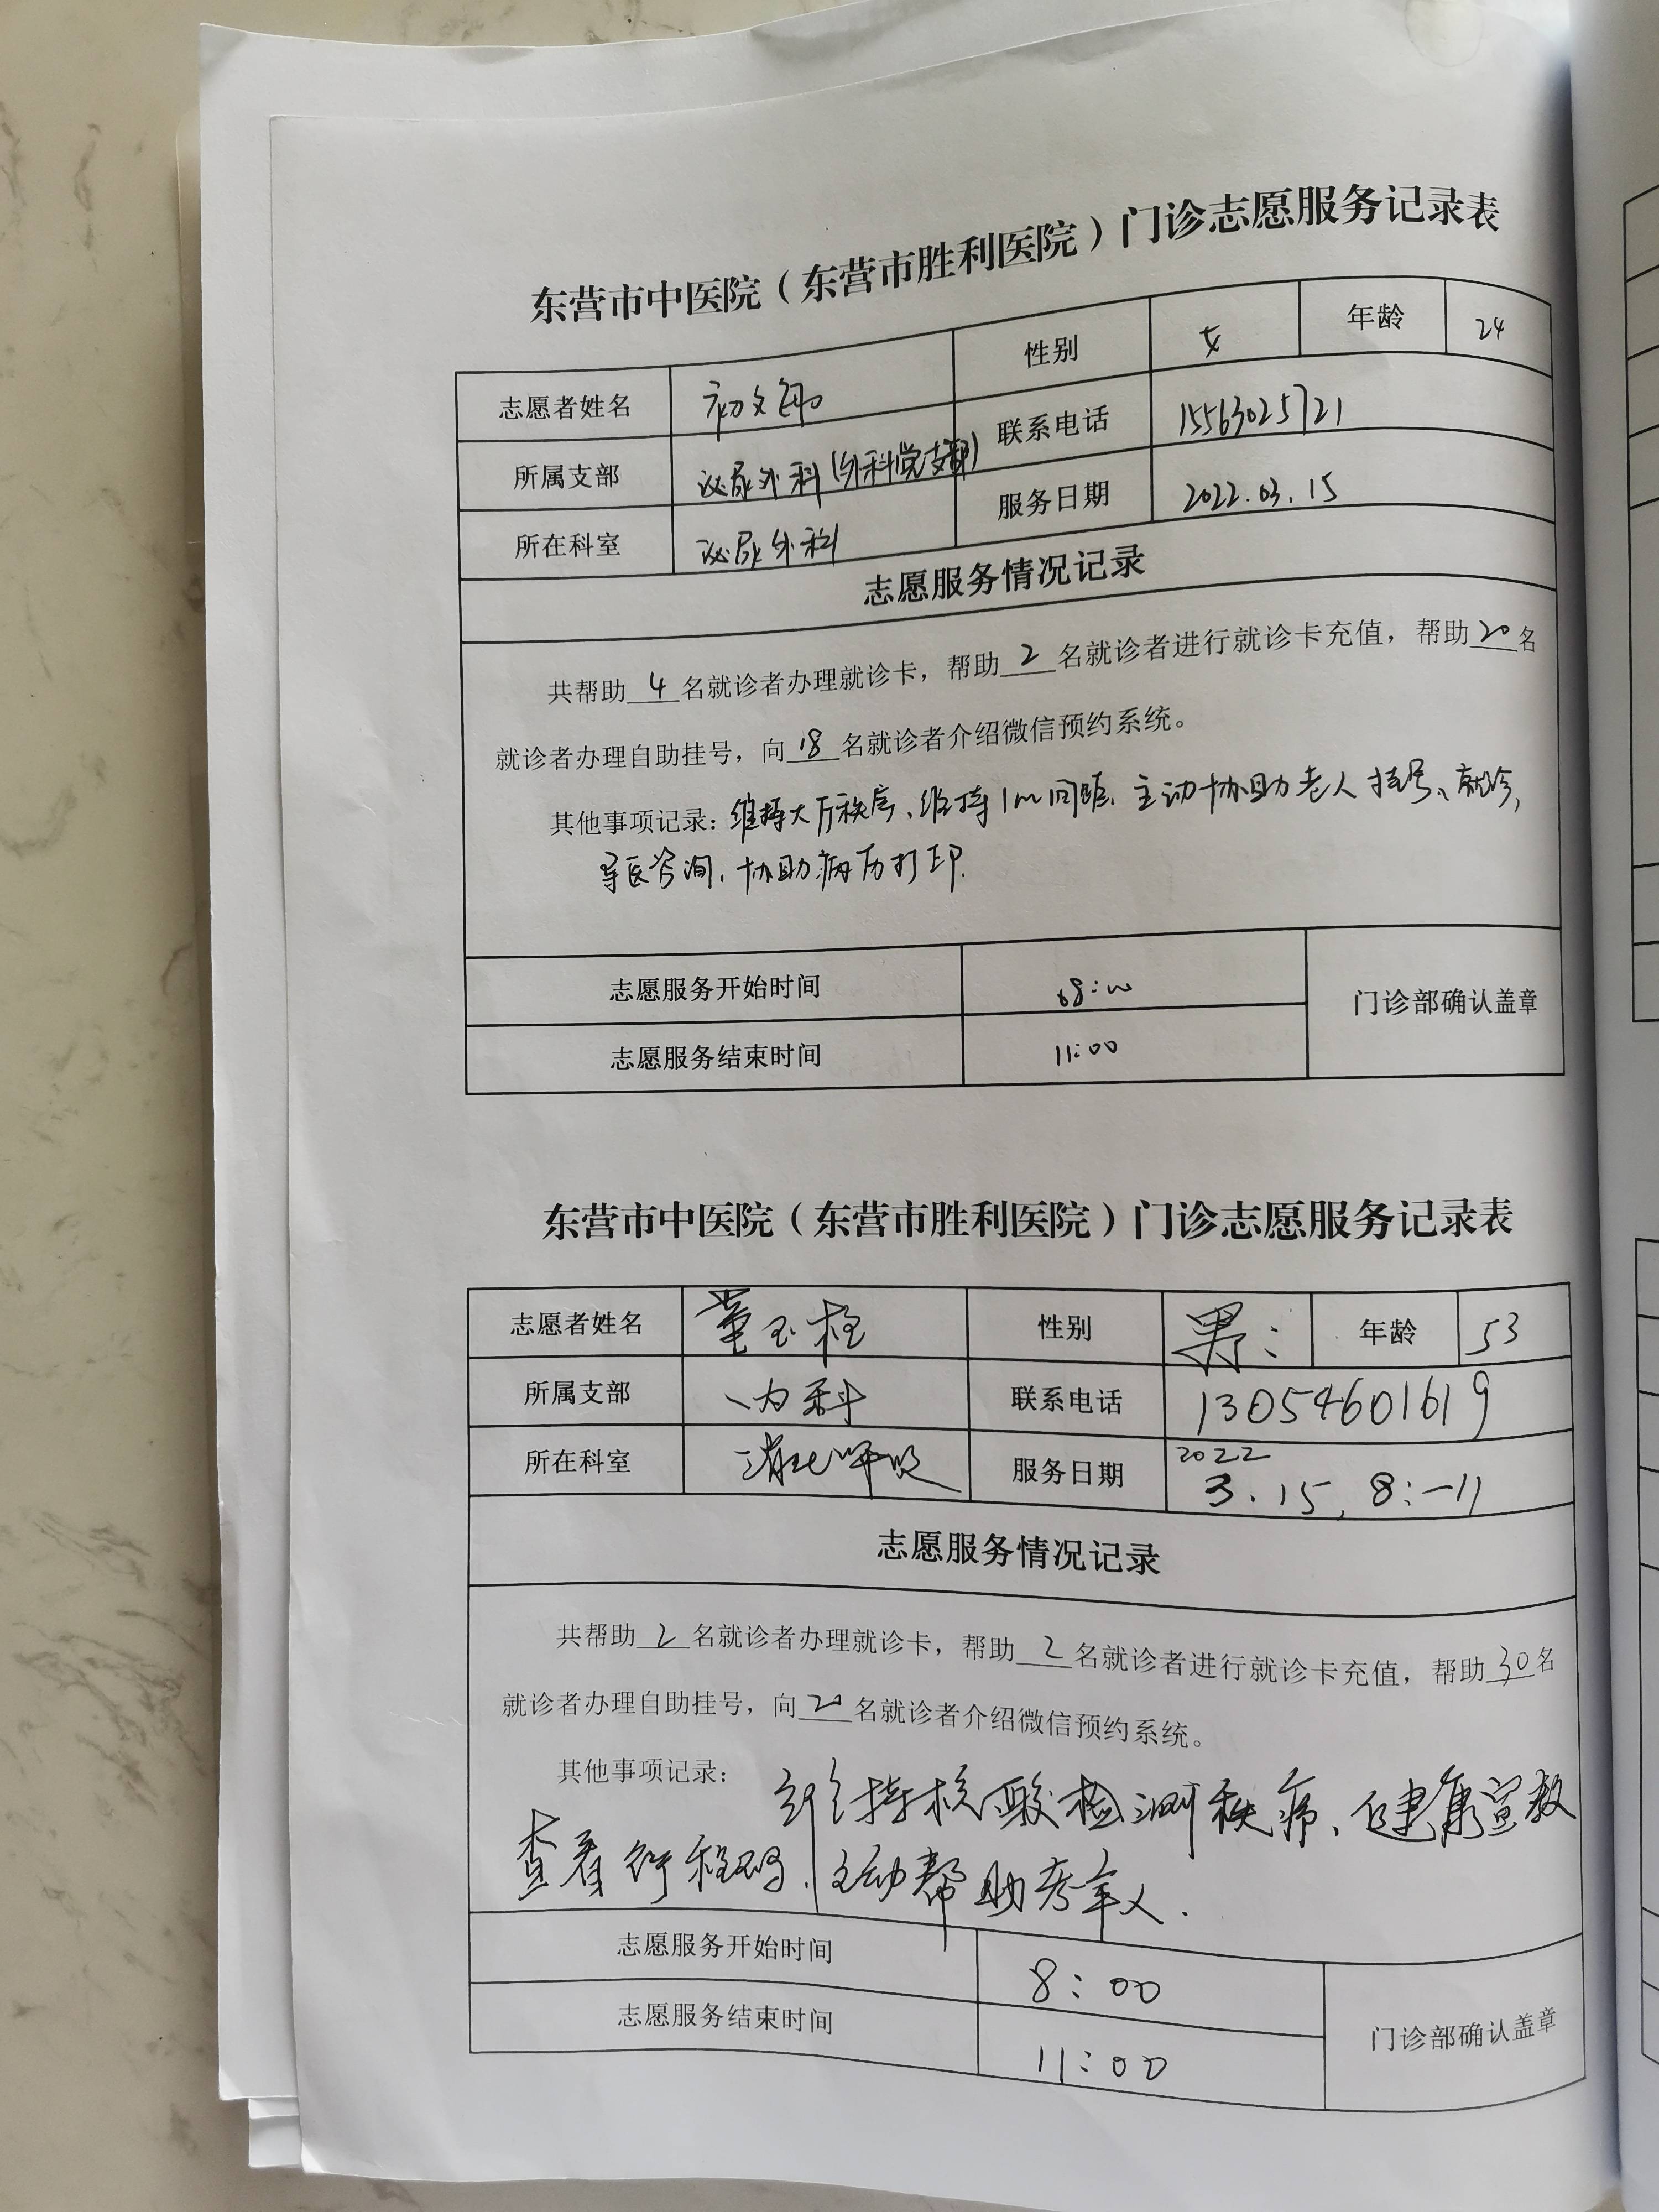 东营市中医院（东营市胜利医院）门诊志愿服务记录表
志愿者姓名 初文 性别 女 年龄 24
所属支部 泌尿外科(外科党支部) 联系电话 15563025721
所在科室 泌尿外科 服务日期 2022.03.15
志愿服务情况记录
共帮助4名就诊者办理就诊卡，帮助2名就诊者进行就诊卡充值，帮助20名
就诊者办理自助挂号，向18名就诊者介绍微信预约系统。
其他事项记录：维持大厅秩序、维持1m间距、主动协助老人挂号、就诊,
导医咨询、协助病历打印.
志愿服务开始时间 08:00 门诊部确认盖章
志愿服务结束时间 11:00
东营市中医院（东营市胜利医院）门诊志愿服务记录表
志愿者姓名 董玉栓 性别 男 年龄 53
所属支部 内科 联系电话 13054601619
所在科室 消化呼吸 服务日期 2022
3.15, 8:-11
志愿服务情况记录
共帮助2名就诊者办理就诊卡，帮助2名就诊者进行就诊卡充值，帮助30名
就诊者办理自助挂号，向20名就诊者介绍微信预约系统。
其他事项记录： 维持核酸检测秩序、健康宣教
查看行程码、主动帮助老年人.
志愿服务开始时间 8:00 门诊部确认盖章
志愿服务结束时间 11:00